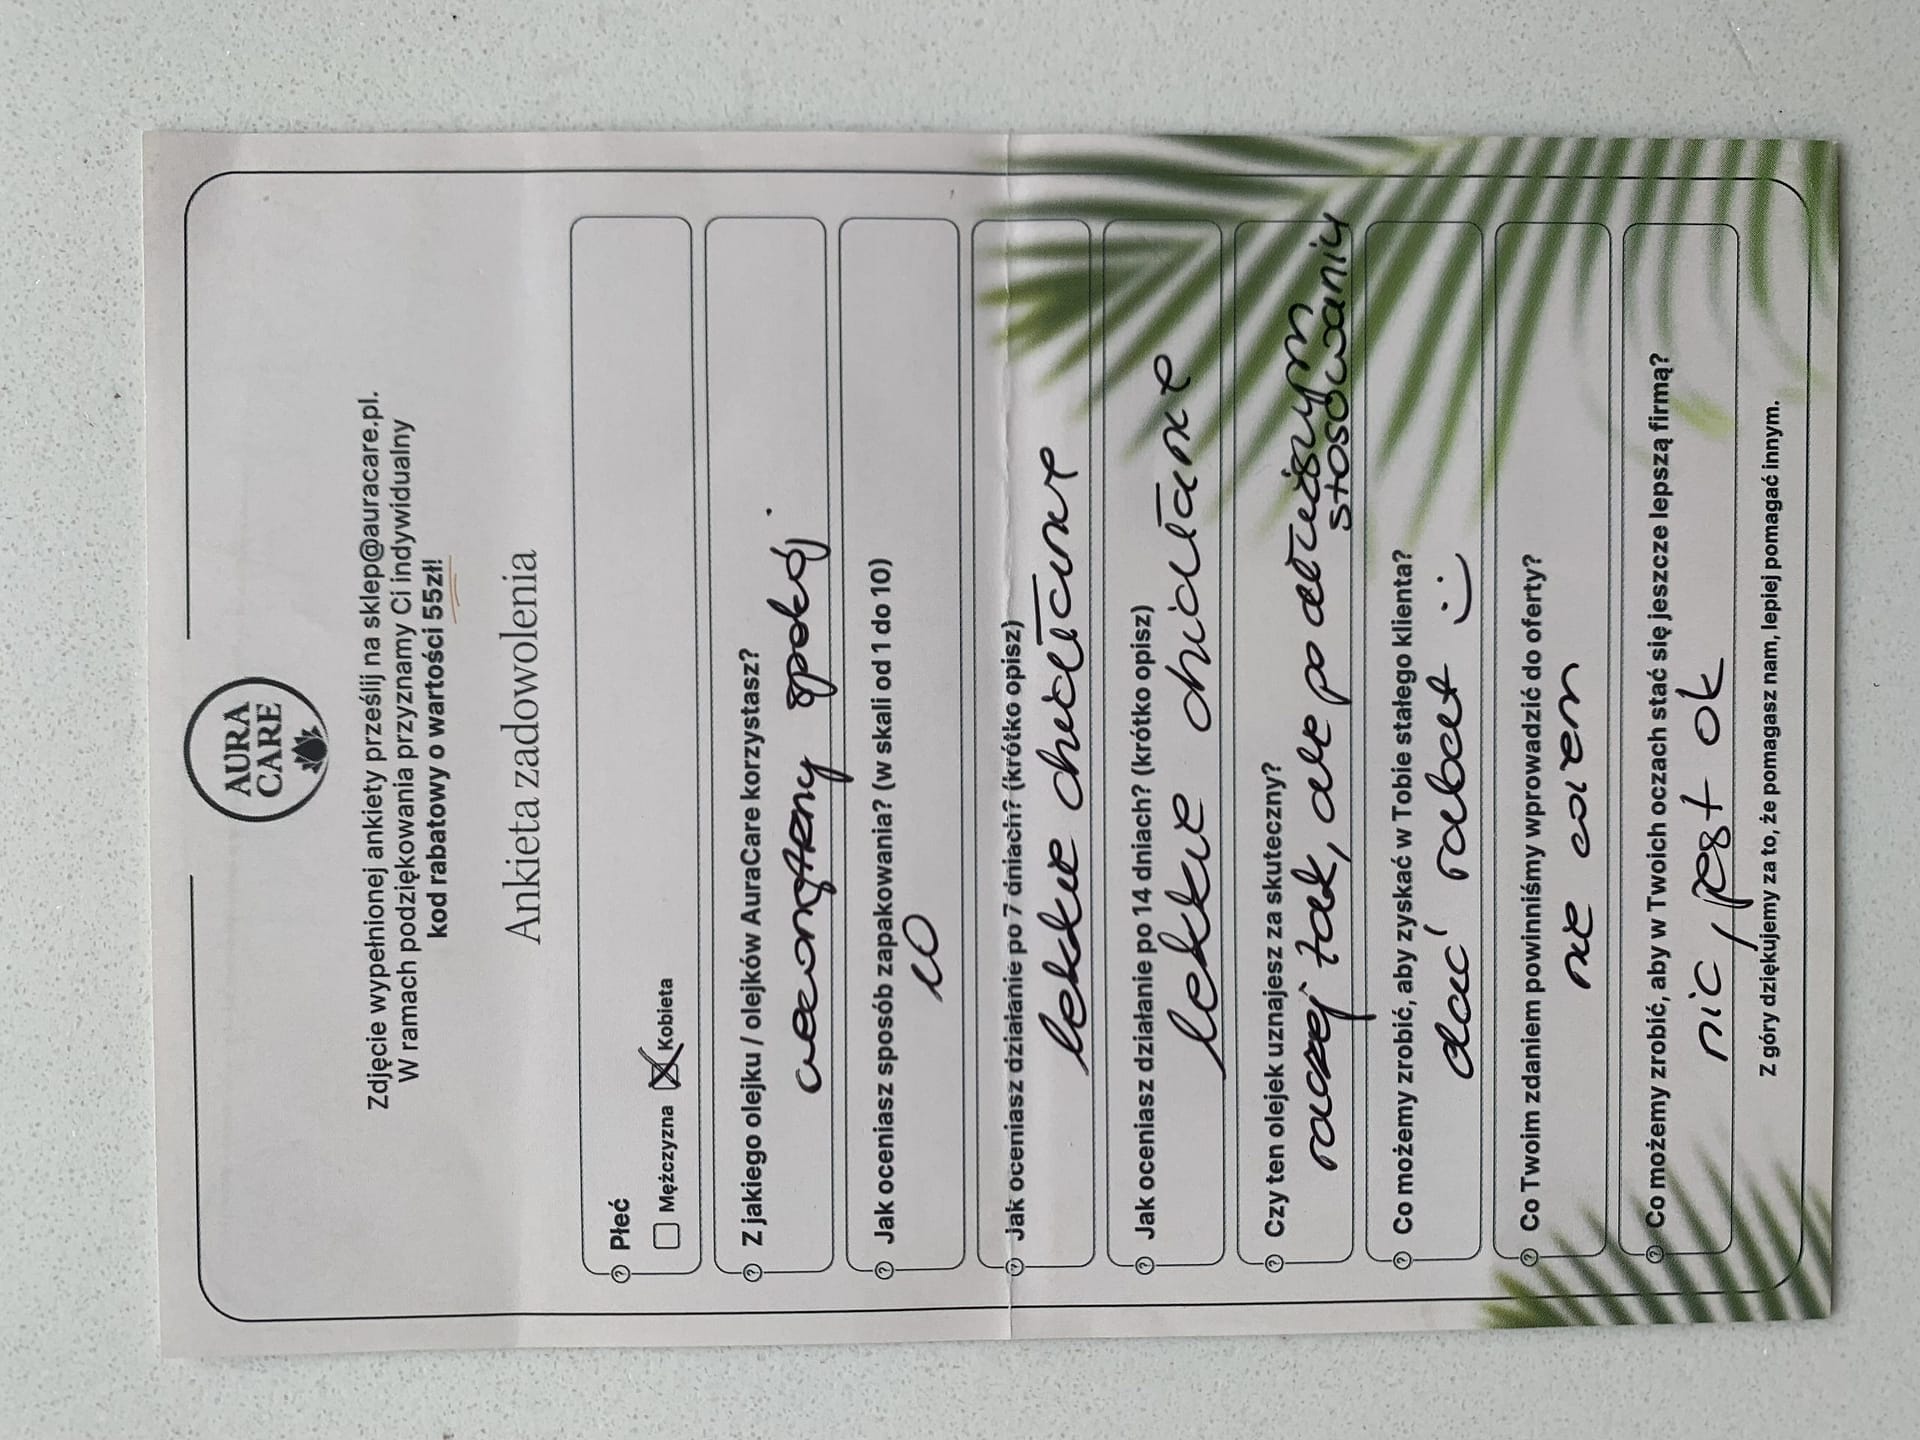 AURA
CARE
Zdjęcie wypełnionej ankiety prześlij na sklep@auracare.pl.
W ramach podziękowania przyznamy Ci indywidualny
kod rabatowy o wartości 55zł!
Ankieta zadowolenia
Płeć
Mężczyzna Kobieta
Z jakiego olejku / olejków AuraCare korzystasz?
wewnętrzny spokój.
Jak oceniasz sposób zapakowania? (w skali od 1 do 10)
10
Jak oceniasz działanie po 7 dniach? (krótko opisz)
lekkie działanie
Jak oceniasz działanie po 14 dniach? (krótko opisz)
lekkie działanie
Czy ten olejek uznajesz za skuteczny?
raczej tak, ale po dłuższym
stosowaniu
Co możemy zrobić, aby zyskać w Tobie stałego klienta?
dać rabat :)
Co Twoim zdaniem powinniśmy wprowadzić do oferty?
nie wiem
Co możemy zrobić, aby w Twoich oczach stać się jeszcze lepszą firmą?
nic, jest ok
Z góry dziękujemy za to, że pomagasz nam, lepiej pomagać innym.